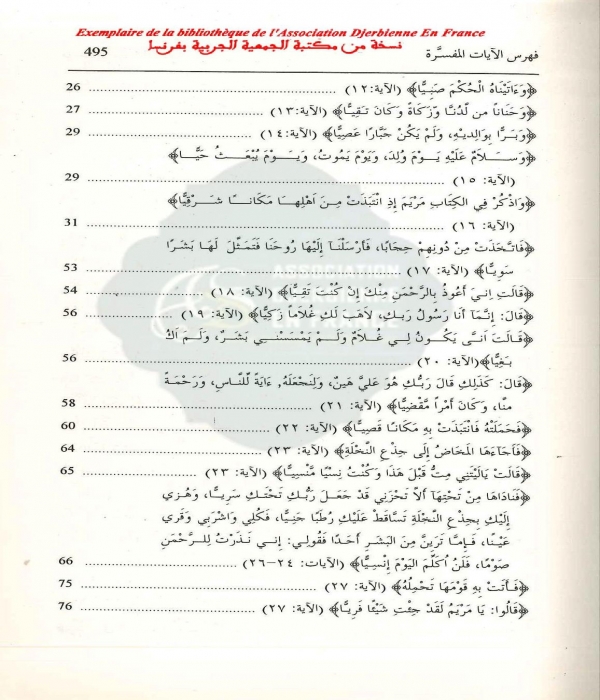 Exemplaire de la bibliothèque de l'Association Djerbienne En France
نسخة من مكتبة الجمعية الجربية بفرنسا
فهرس الآيات المفسَّرة 495
﴿وَءَاتَيْنَاهُ الْحُكْمَ صَبِيًّا﴾ (الآية:١٢) 26
﴿وَحَنَاناً من لَّدُنَّا وَّزَكَاةً وَكَانَ تَـقِـيًّا﴾ (الآية:١٣) 27
﴿وَبَـرًّا بِوَالِديـْهِ، وَلَمْ يَكُنْ جَبَّارًا عَصِيًّا﴾ (الآية:١٤) 29
﴿وَسَـلاَمٌ عَلَيْهِ يَـوْمَ وُلِدَ، وَيَوْمَ يَمُوتُ، وَيَـوْمَ يُبْعَـثُ حَيًّـا﴾
(الآية: ١٥) 29
﴿وَاذْكُرْ فِي الْكِتَابِ مَرْيَمَ إِذِ انْتَبَذَتْ مِـنَ اَهْلِـهَا مَكَانًـا شَـرْقِيًّا﴾
(الآية: ١٦) 31
﴿فَاتـَّخَذَتْ مِنْ دُونِهِمْ حِجَابًا، فَأَرْسَلْنَآ إِلَيْهَا رُوحَنَا فَتَمَثَّـلَ لَـهَا بَشَـرًا
سَوِيًّا﴾ (الآية: ١٧) 53
﴿قَالَتِ اِنيَ أَعُوذُ بِالرَّحْمَنِ مِنْكَ إِنْ كُنْتَ تَقِيًّا﴾ (الآية: ١٨) 54
﴿قَالَ: إِنـَّمَآ أَنَا رَسُولُ رَبـكِ، لأَهَبَ لَكِ غُلاَماً زَكِيًّا﴾ (الآية: ١٩) 56
﴿قَـالَتَ اَنـَّى يَكُـونُ لِـي غُـلاَمٌ وَلَـمْ يَمْسَسْنِي بَشَـرٌ، وَلَـمَ اَكُ
بَغِيًّا﴾(الآية: ٢٠) 56
﴿قَالَ: كَذَلِكِ قَالَ رَبـُّكِ هُوَ عَلَيَّ هَينٌ، وَلِنَجْعَلَهُ, ءَايَةً لِّلنَّاسِ، وَرَحْمَةً
منَّا، وَكَانَ أَمْراً مَّقْضِيًّا﴾ (الآية: ٢١) 58
﴿فَحَمَلَتْهُ فَانْتَبَذَتْ بِهِ مَكَانًا قَصِيًّا﴾ (الآية: ٢٢) 60
﴿فَأَجَآءَهَا الْمَخَاضُ إِلَى جِذْعِ النَّخْلَةِ﴾ (الآية: ٢٣) 64
﴿قَالَتْ يَالَيْتَنِي مِتُّ قَبْلَ هَذَا وَكُنْتُ نِسْيًا مَّنْسِيًّا﴾ (الآية: ٢٣) 65
﴿فَنَادَاهَا مِنْ تَحْتِهَآ أَلاَّ تَحْزَنِي قَدْ جَعَـلَ رَبُّـكِ تَحْتَـكِ سَـرِيـًّا، وَهُـزِي
إِلَيْكِ بِجِذْعِ النَّخْلَةِ تَسَّاقَطْ عَلَيْكِ رُطَبًا جَنِيًّا، فَكُلِي وَاشْرَبِي وَقَرِي
عَيْـنًا، فَـإِمَّا تَرَيِنَّ مِنَ الْبَشَـرِ أَحَدًا فَقُولِـي: إِنـي نَـذَرْتُ لِلـرَّحْمَنِ
صَوْمًا، فَلَنُ اكَلِّمَ الْيَوْمَ إِنْسِيًّا﴾ (الآيات: ٢٤-٢٦) 66
﴿فَـأَتَتْ بِهِ قَوْمَهَا تَحْمِلُهُ﴾ (الآية: ٢٧) 75
﴿قَالُوا: يَا مَرْيَمُ لَقَدْ جِئْتِ شَيْئًا فَرِيًّا﴾ (الآية: ٢٧) 76
ASSOCIATION
DJERBIENNE
EN FRANCE